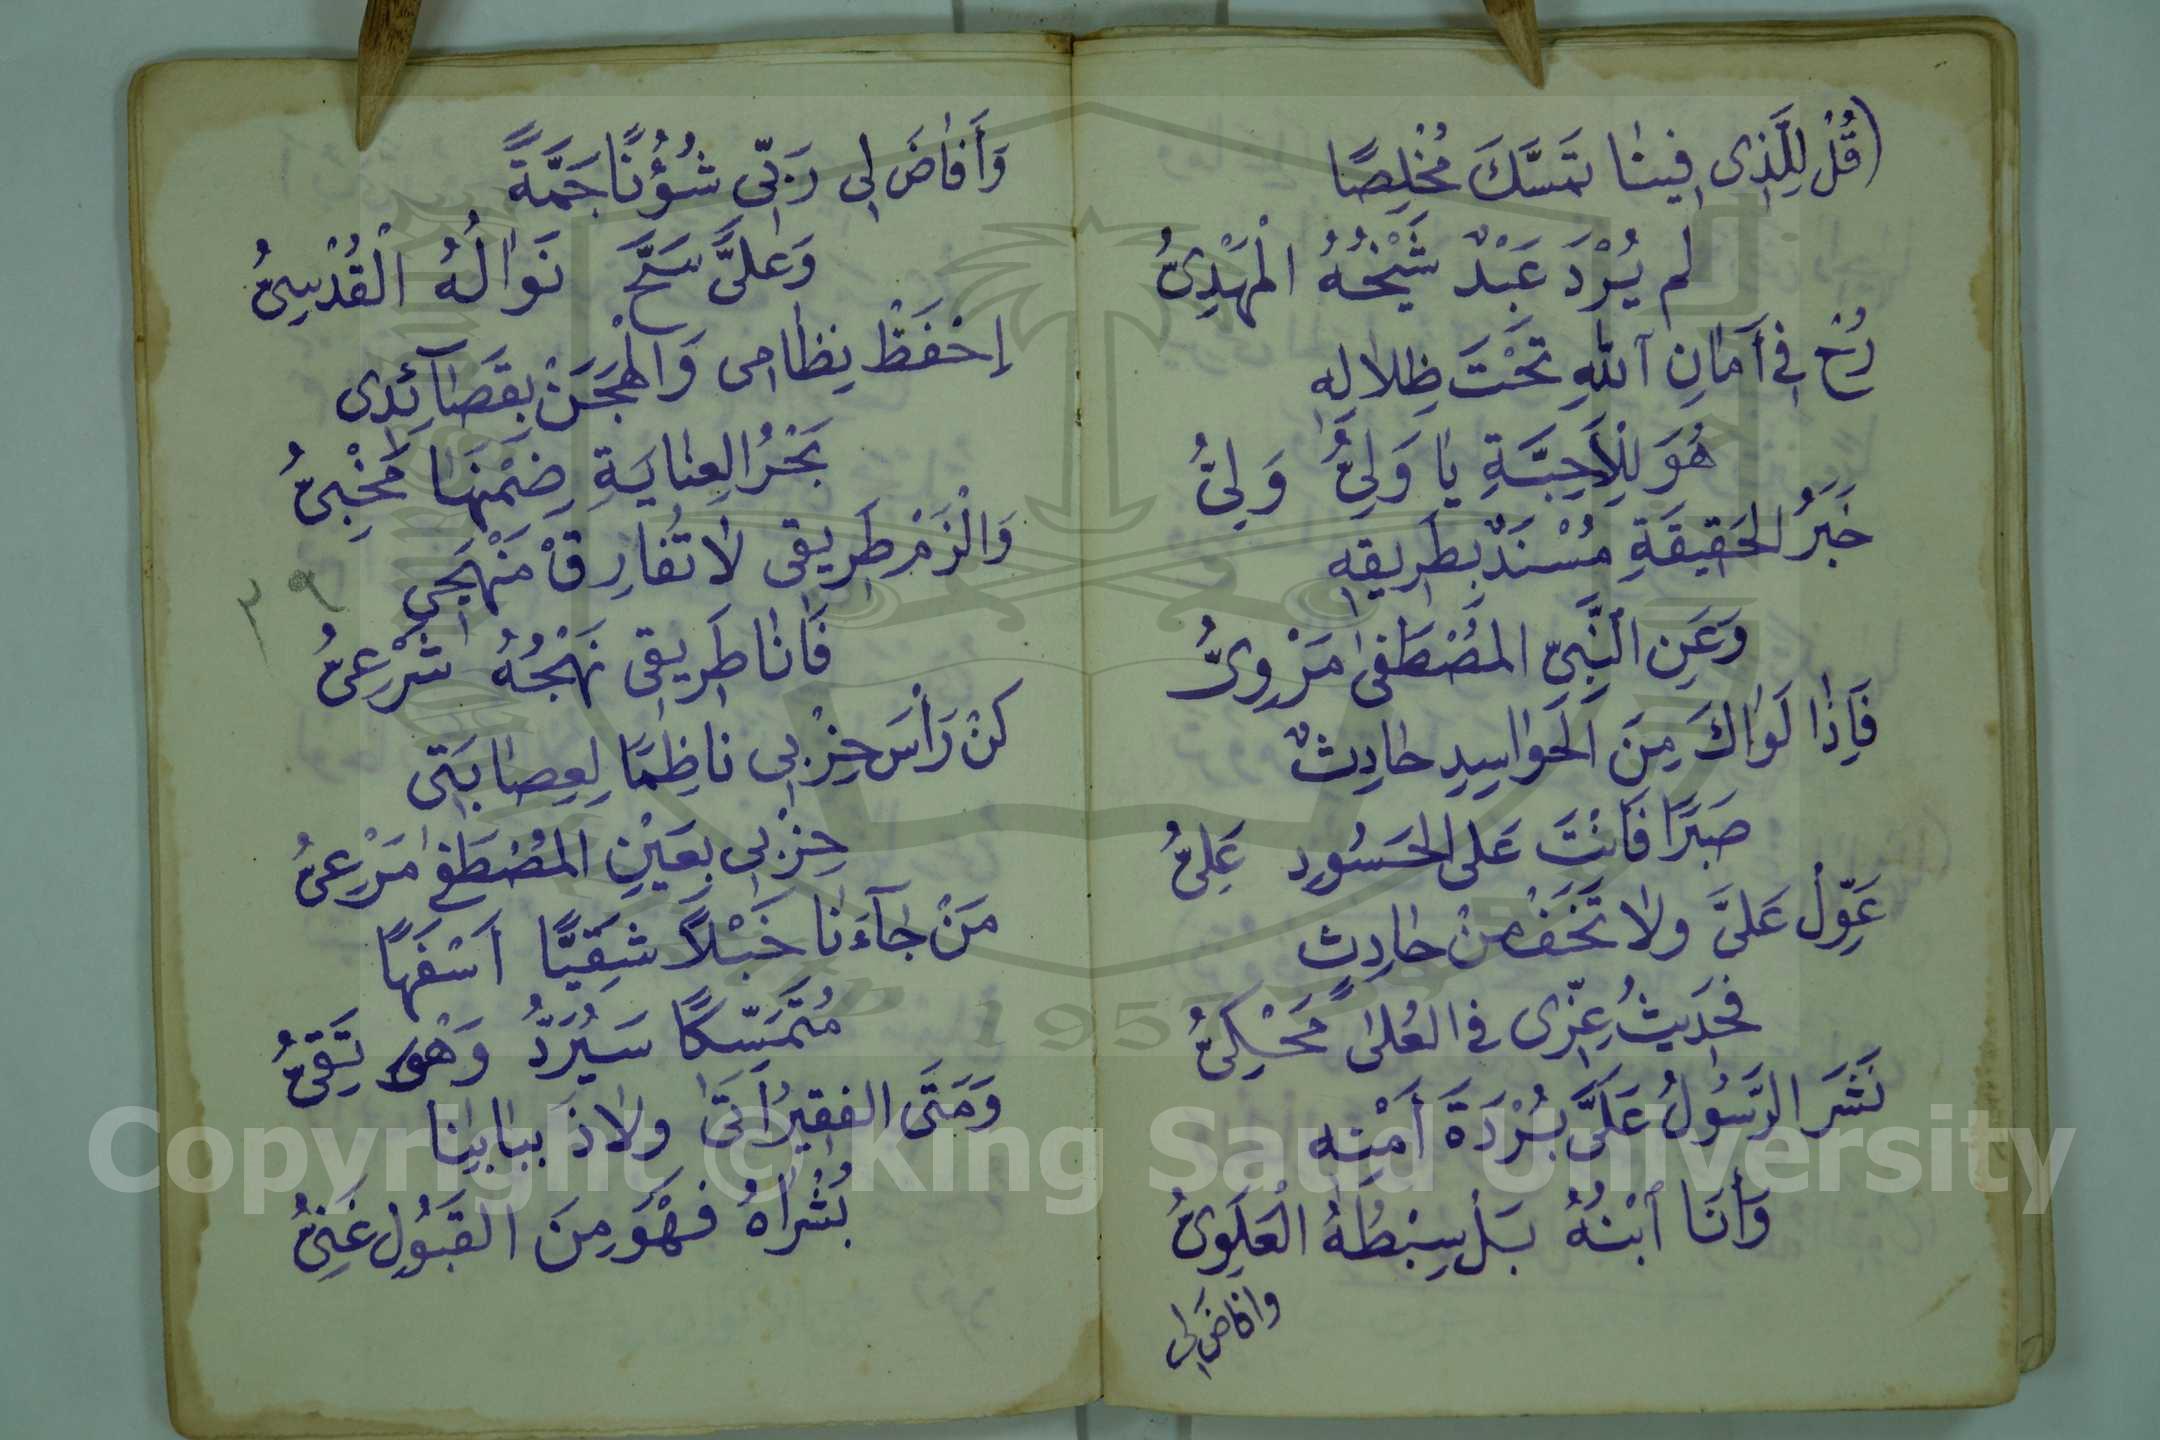 (قُلْ لِلَّذِى فِينٰا تَمَسَّكَ مُخْلِصًا
لم يُرْدَ عَبْدٌ شَيْخُهُ الْمَهْدِىُّ
رُحْ فِي أَمٰانِ اللهِ تَحْتَ ظِلالِهِ
هُوَ لِلْأَحِبَّةِ يٰا وَلِىُّ وَلِىُّ
خَبَرُ الحَقِيقَةِ مُسْنَدٌ بِطَرِيقِهِ
وَعَنِ النَّبِىِّ المُصْطَفىٰ مَرْوِىُّ
فَإِذٰا لَوٰاكَ مِنَ الحَواسِدِ حٰادِثٌ
صَبْرًا فَأَنْتَ عَلى الحَسُودِ عَلِىُّ
عَوِّلْ عَلَىَّ ولٰا تَخَفْ مِنْ حٰادِثٍ
فَحَدِيثُ عِزِّى فِي العُلىٰ مَحْكِىُّ
نَشَرَ الرَّسُولُ عَلَىَّ بُرْدَةَ أَمْنِهِ
وَأَنَا ابْنُهُ بَلْ سِبْطُهُ الْعَلَوِىُّ
وافاضَ لِي
وَأَفٰاضَ لِي رَبِّى شُؤُنًا جَمَّةً
وَعَلىَّ سَحَّ نَوٰالُهُ الْقُدْسِىُّ
إحْفَظْ نِظٰامى وَالْهَجَنْ بِقَصٰآئِدى
بَحْرُ العِنٰايَةِ ضِمْنَهٰا مَخْبِىُّ
وَالْزَمْ طَرِيقى لٰا تُفٰارِقْ مَنْهَجِي
فَأنٰا طَرِيقى نَهْجُهُ شَرْعِىُّ
٣٩
كنْ رَأْسَ حِزْبِي نٰاظِمًا لِعِصٰابَتِى
حِزْبِي بِعَيْنِ المُصْطَفىٰ مَرْعِىُّ
مَنْ جٰآءَنٰا خَبْلًا شَقِيًّا أَسْفَهًا
مُتَمَسِّكًا سَيُرَدُّ وَهْوَ تَقِىُّ
وَمَتَى الفقِيرُ أَتَىٰ ولٰاذَ بِبٰابِنٰا
بُشْرٰاهُ فَهْوَ مِنَ القَبُولِ غَنِىُّ
Copyright © King Saud University
1957